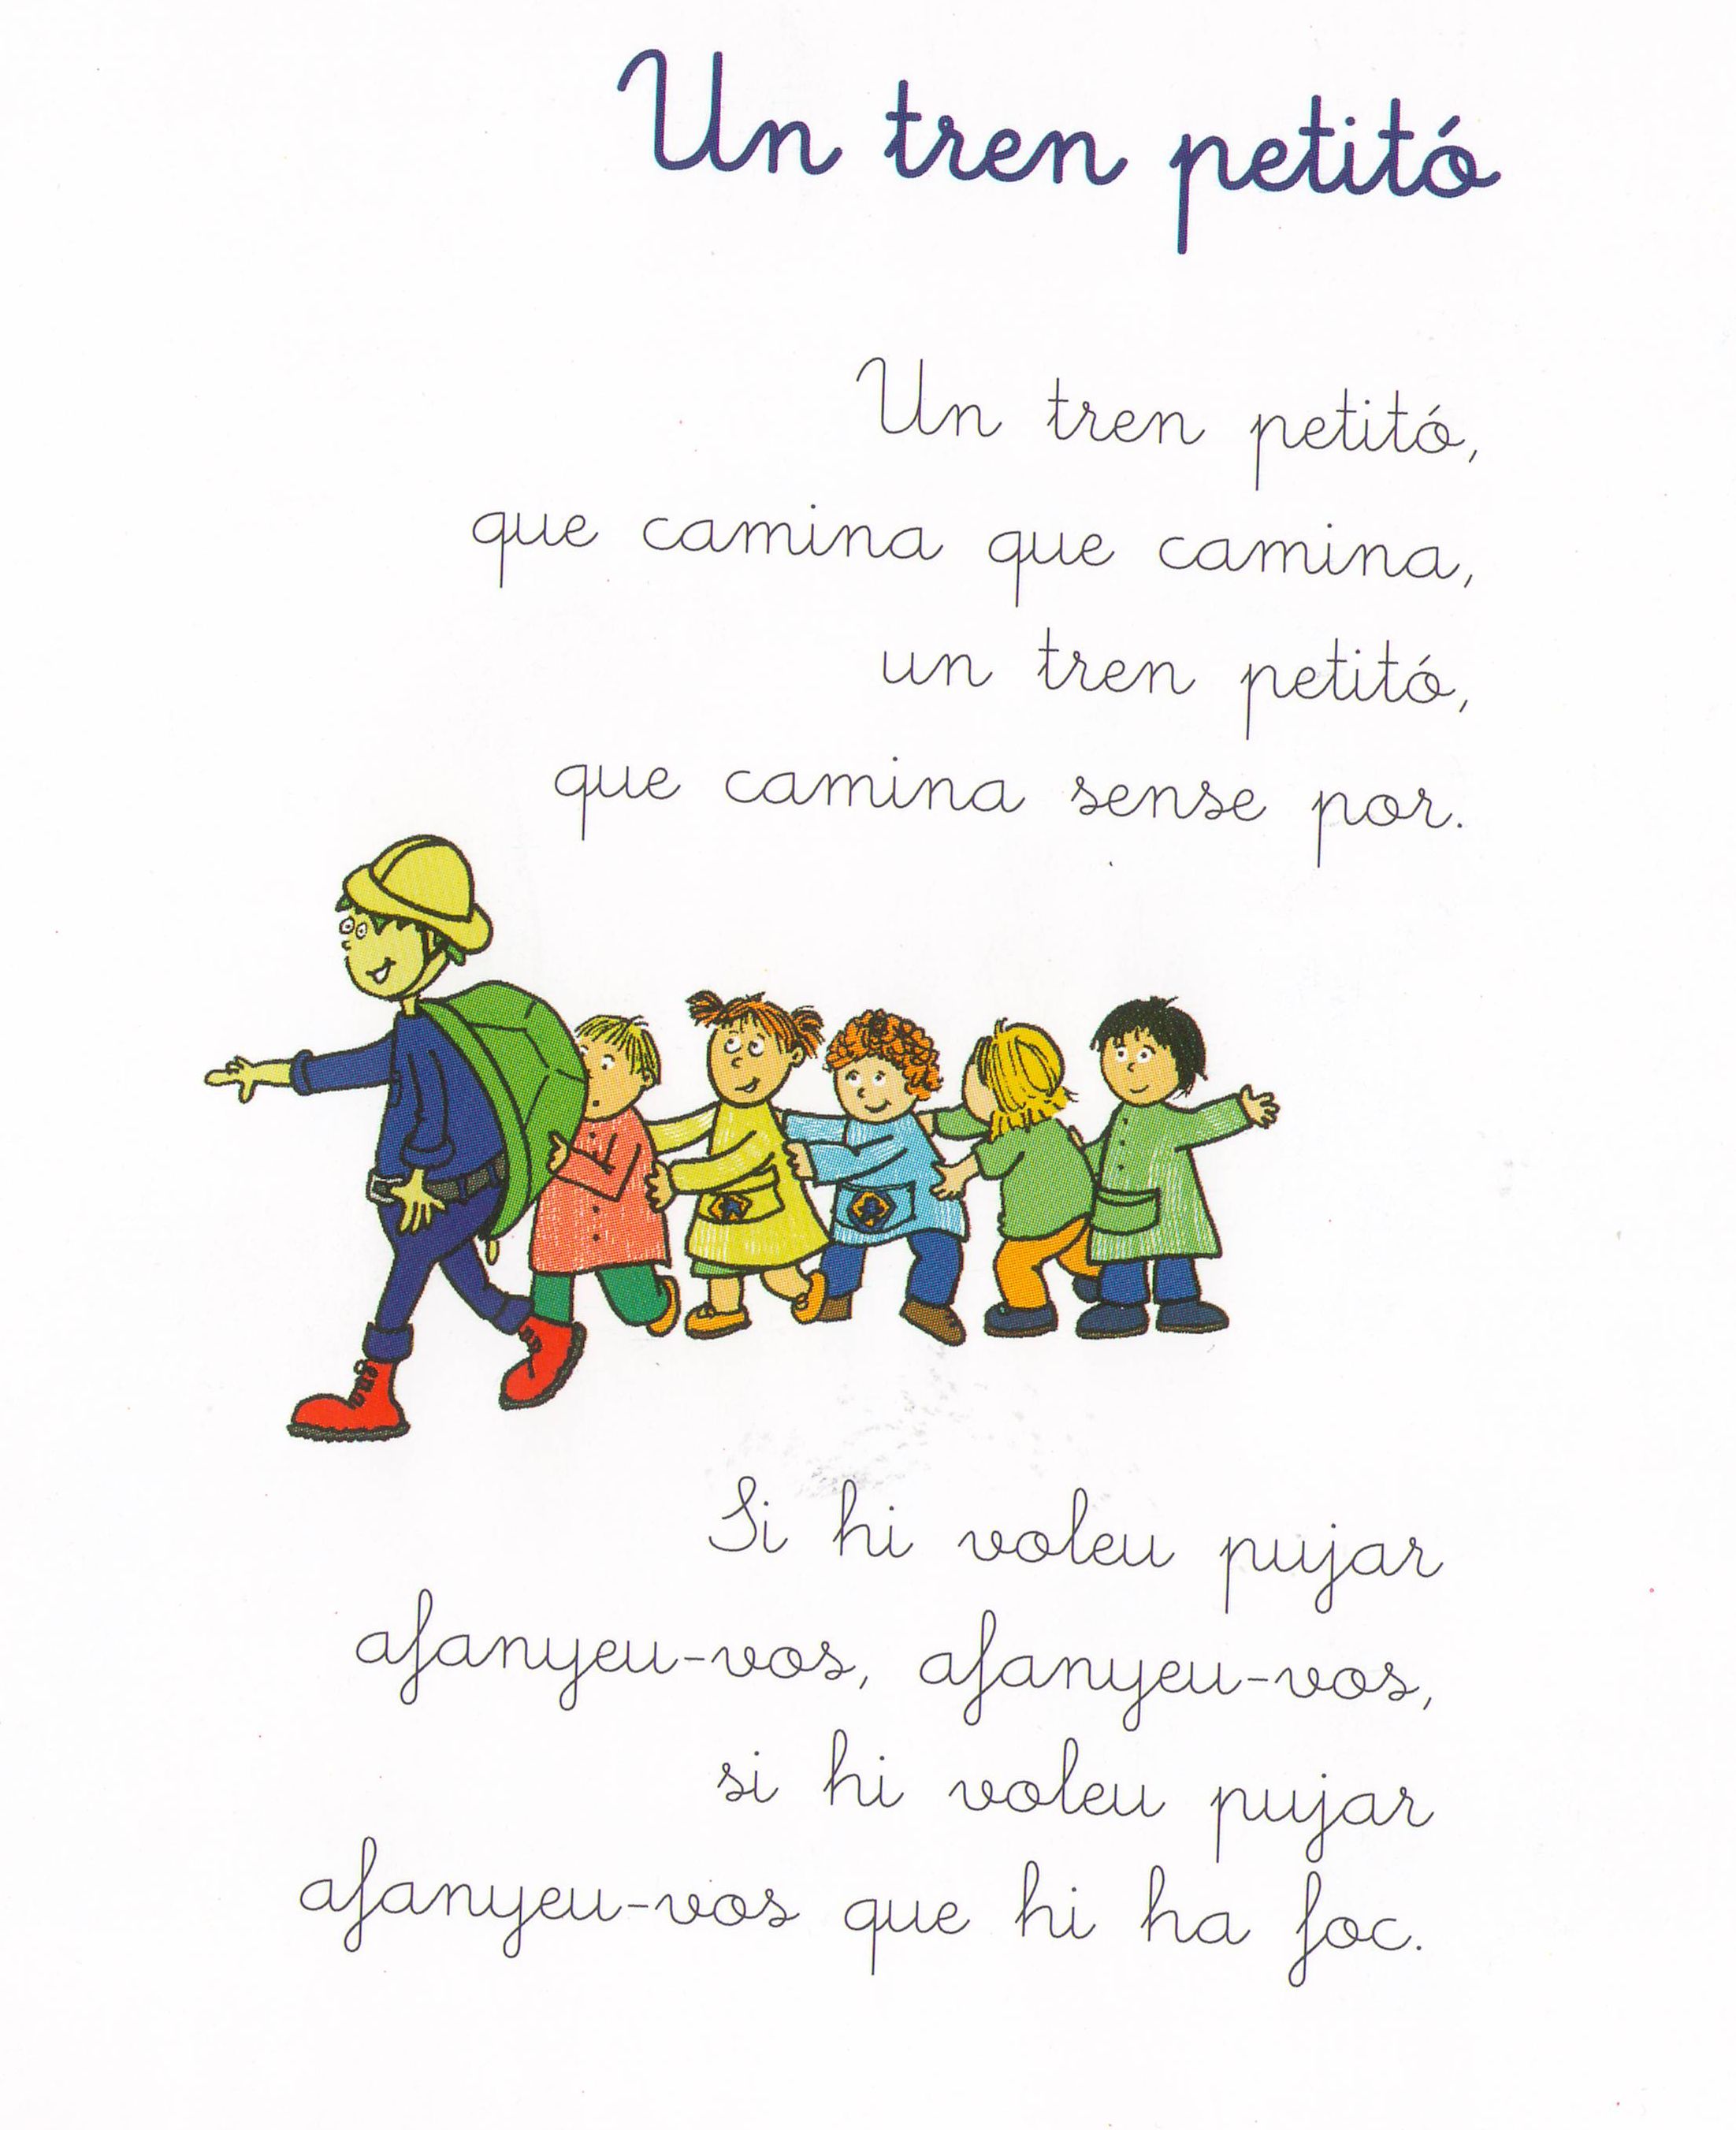 Un tren petitó
Un tren petitó,
que camina que camina,
un tren petitó,
que camina sense por.
Si hi voleu pujar
afanyeu-vos, afanyeu-vos,
si hi voleu pujar
afanyeu-vos que hi ha foc.